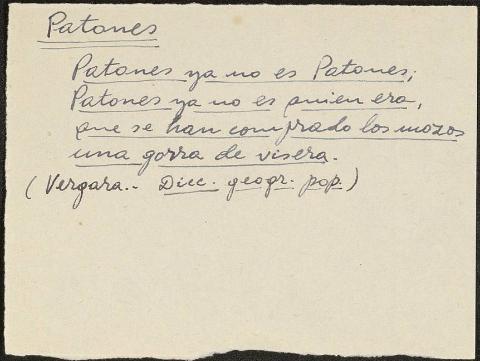 Patones
Patones ya no es Patones;
Patones ya no es quien era,
que se han comprado los mozos
una gorra de visera.
(Vergara.. Dicc. geogr. pop.)